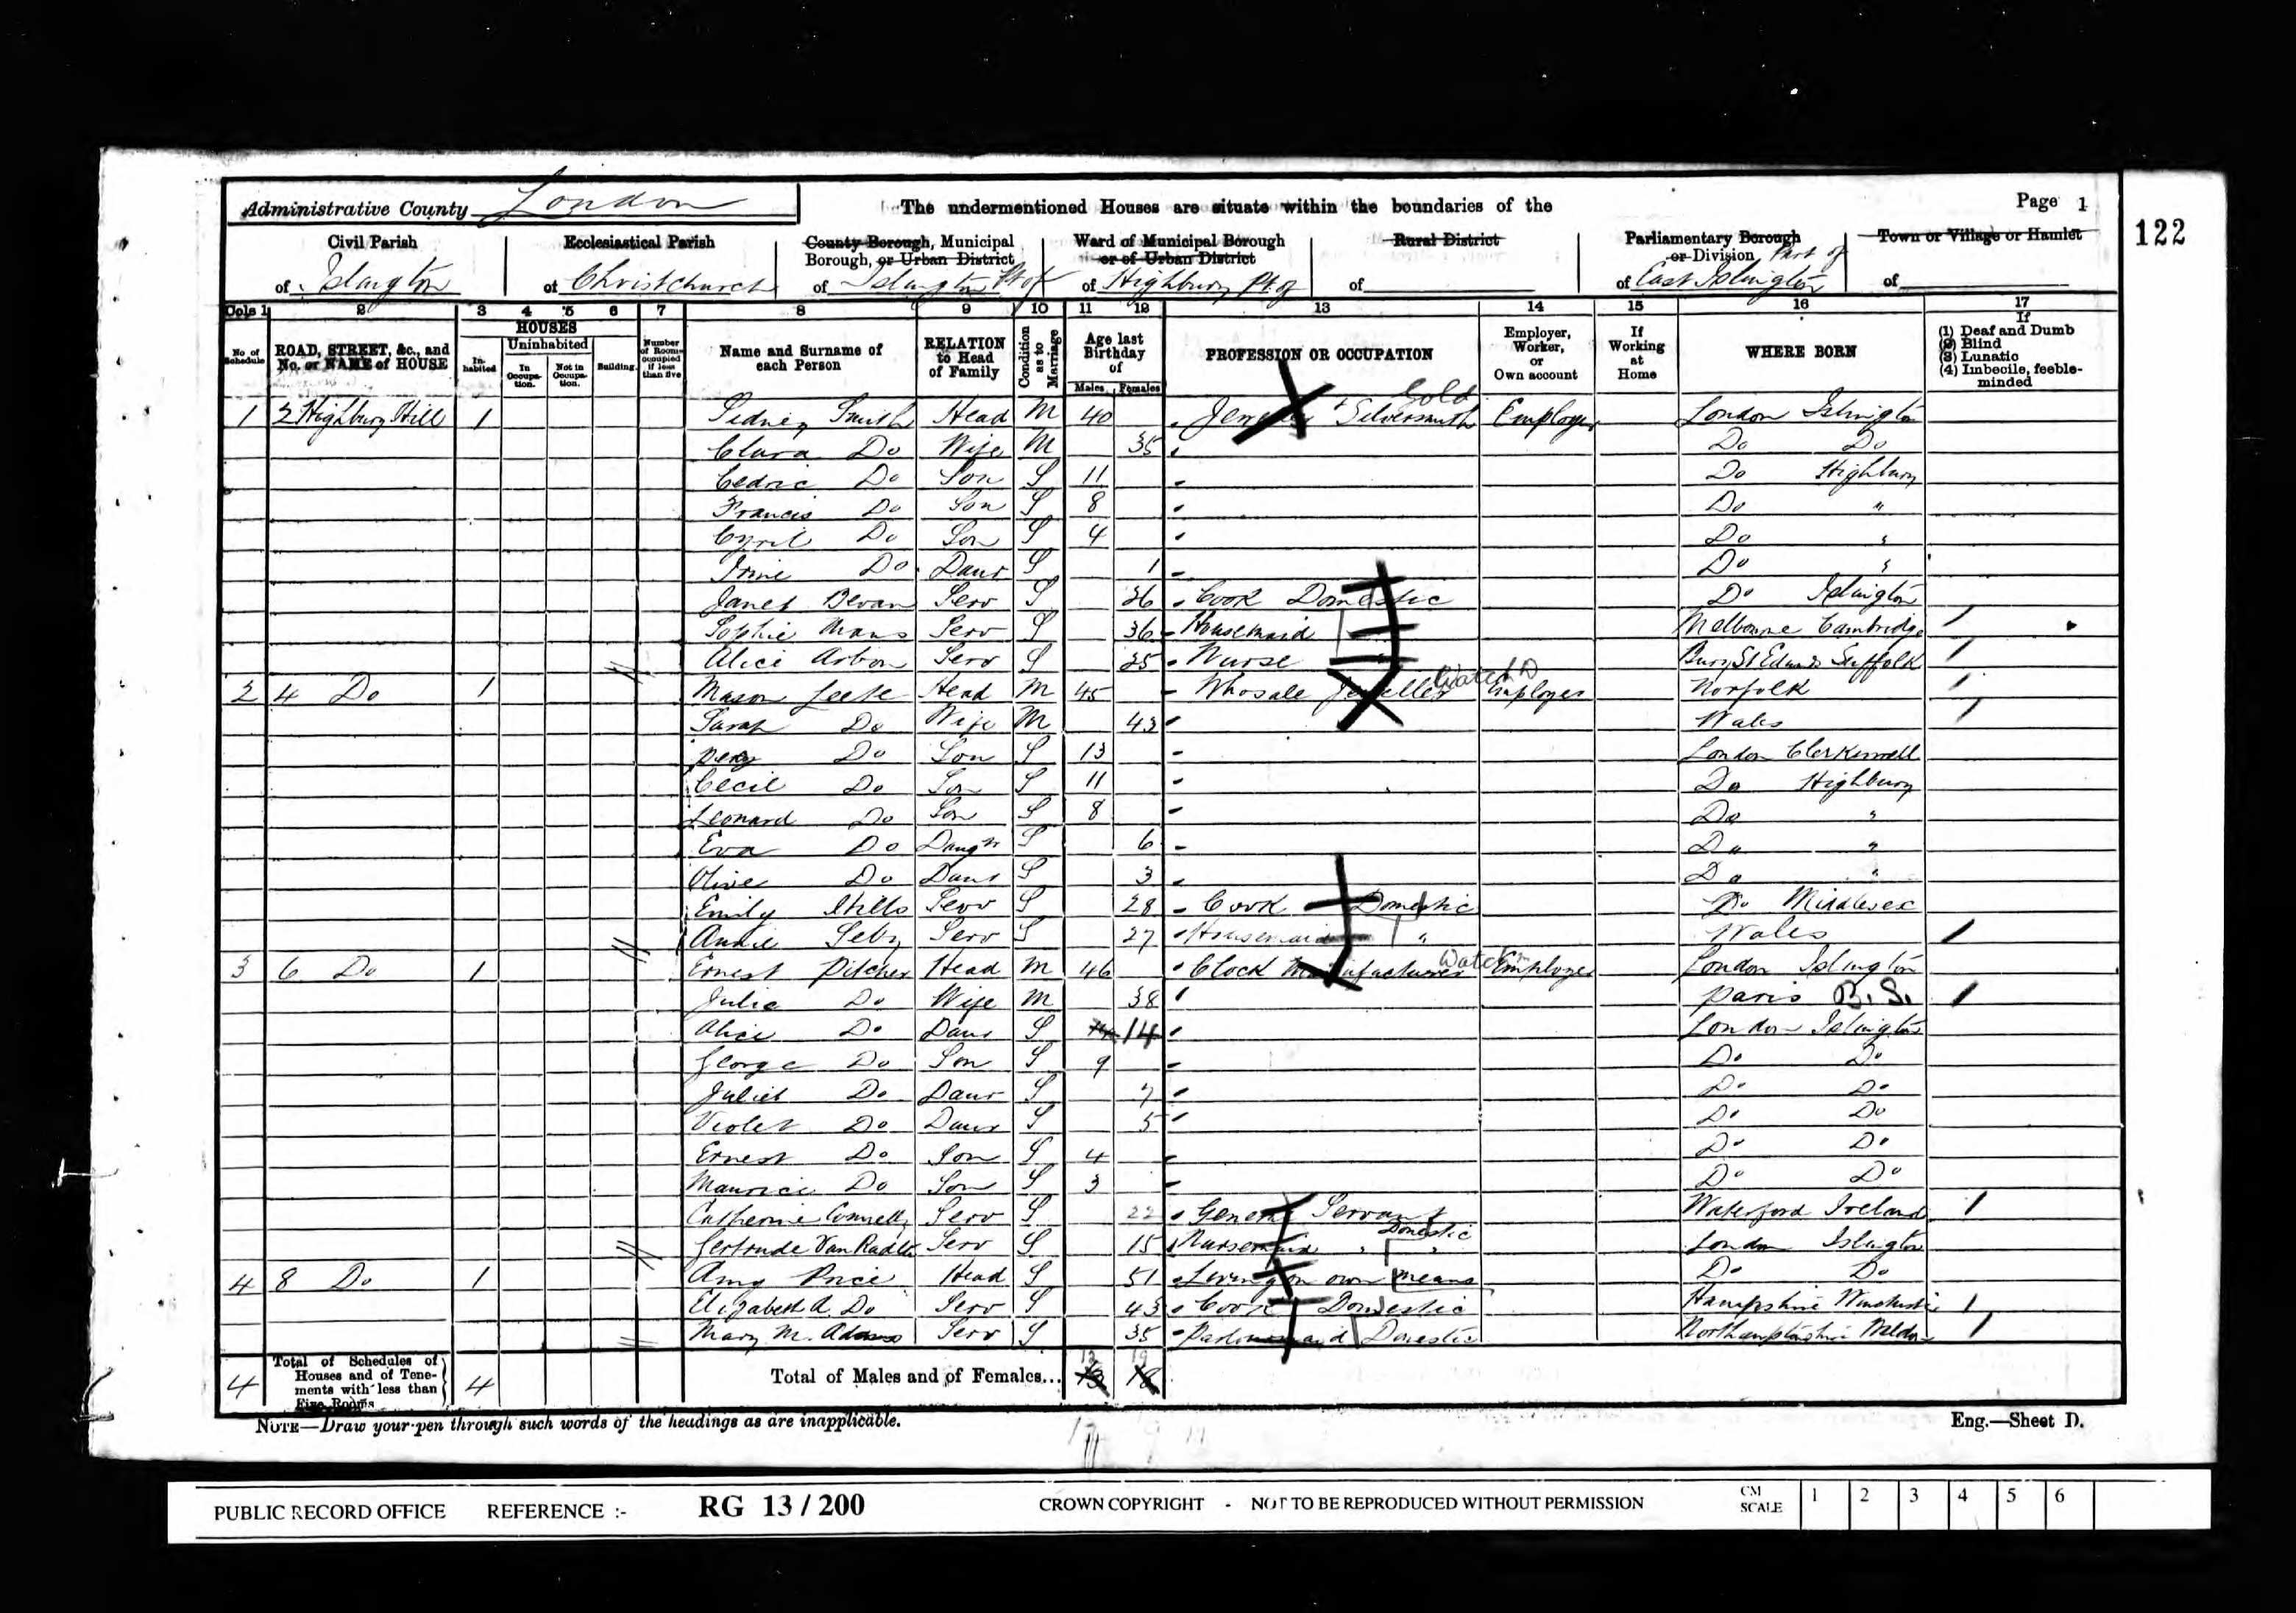 Administrative County London
The undermentioned Houses are situate within the boundaries of the
Page 1
122
Civil Parish of Islington
Ecclesiastical Parish of Christchurch
County Borough, Municipal Borough, or Urban District of Islington Pt of
Ward of Municipal Borough or of Urban District of Highbury Pt of
Rural District of
Parliamentary Borough or Division Part of of East Islington
Town or Village or Hamlet of
Cols 1 2 3 4 5 6 7 8 9 10 11 12 13 14 15 16 17
No. of Schedule
ROAD, STREET, &c., and No. or NAME of HOUSE
HOUSES
Inhabited
Uninhabited
In Occupation.
Not in Occupation.
Building
Number of Rooms occupied if less than five
Name and Surname of each Person
RELATION to Head of Family
Condition as to Marriage
Age last Birthday of
Males Females
PROFESSION OR OCCUPATION
Employer, Worker, or Own account
If Working at Home
WHERE BORN
If (1) Deaf and Dumb (2) Blind (3) Lunatic (4) Imbecile, feeble-minded
1 2 Highbury Hill 1 Sidney Smith Head M 40 Gold + Silversmith Employer London Islington
Clara Do Wife M 35 Do Do
Cedric Do Son S 11 Do Highbury
Francis Do Son S 8 Do "
Cyril Do Son S 4 Do "
Irine Do Daur S 1 Do "
Janet Bevan Serv S 36 Cook Domestic Do Islington
Sophie Mans Serv S 36 Housemaid Melbourne Cambridge
Alice Arbon Serv S Nurse Bury St Edmunds Suffolk
2 4 Do 1 Mason Leete Head M 45 Whosale Jeweller Watch D Employer Norfolk
Sarah Do Wife M 43 Wales
Percy Do Son S 13 London Clerkenwell
Cecil Do Son S 11 Do Highbury
Leonard Do Son S 8 Do "
Eva Do Daugr S 6 Do "
Olive Do Daur S 3 Do "
Emily Serv S 28 Cook Domestic Do Middlesex
Annie Serv S 27 Housemaid " Wales
3 6 Do 1 Ernest Pilcher Head M 46 Clock Manufacturer Watch m Employer London Islington
Julia Do Wife M 38 Paris B. S.
Alice Do Daur S 14 London Islington
George Do Son S 9 Do Do
Juliet Do Daur S 7 Do Do
Violet Do Daur S 5 Do Do
Ernest Do Son S 4 Do Do
Maurice Do Son S 3 Do Do
Catherine Connelly Serv S 22 General Servant Waterford Ireland
Gertrude Serv S 15 Nursemaid " Domestic " London Islington
4 8 Do 1 Amy Price Head S 51 Living on own means Do Do
Elizabeth A. Do Serv S 43 Cook Domestic Hampshire Winchester
Mary M. Adams Serv S 35 Parlourmaid Domestic Northamptonshire
4 Total of Schedules of Houses and of Tenements with less than Five Rooms 4 Total of Males and of Females... 12 19
13 18
NOTE—Draw your pen through such words of the headings as are inapplicable.
Eng.—Sheet D.
PUBLIC RECORD OFFICE REFERENCE :- RG 13/200 CROWN COPYRIGHT - NOT TO BE REPRODUCED WITHOUT PERMISSION CM SCALE 1 2 3 4 5 6